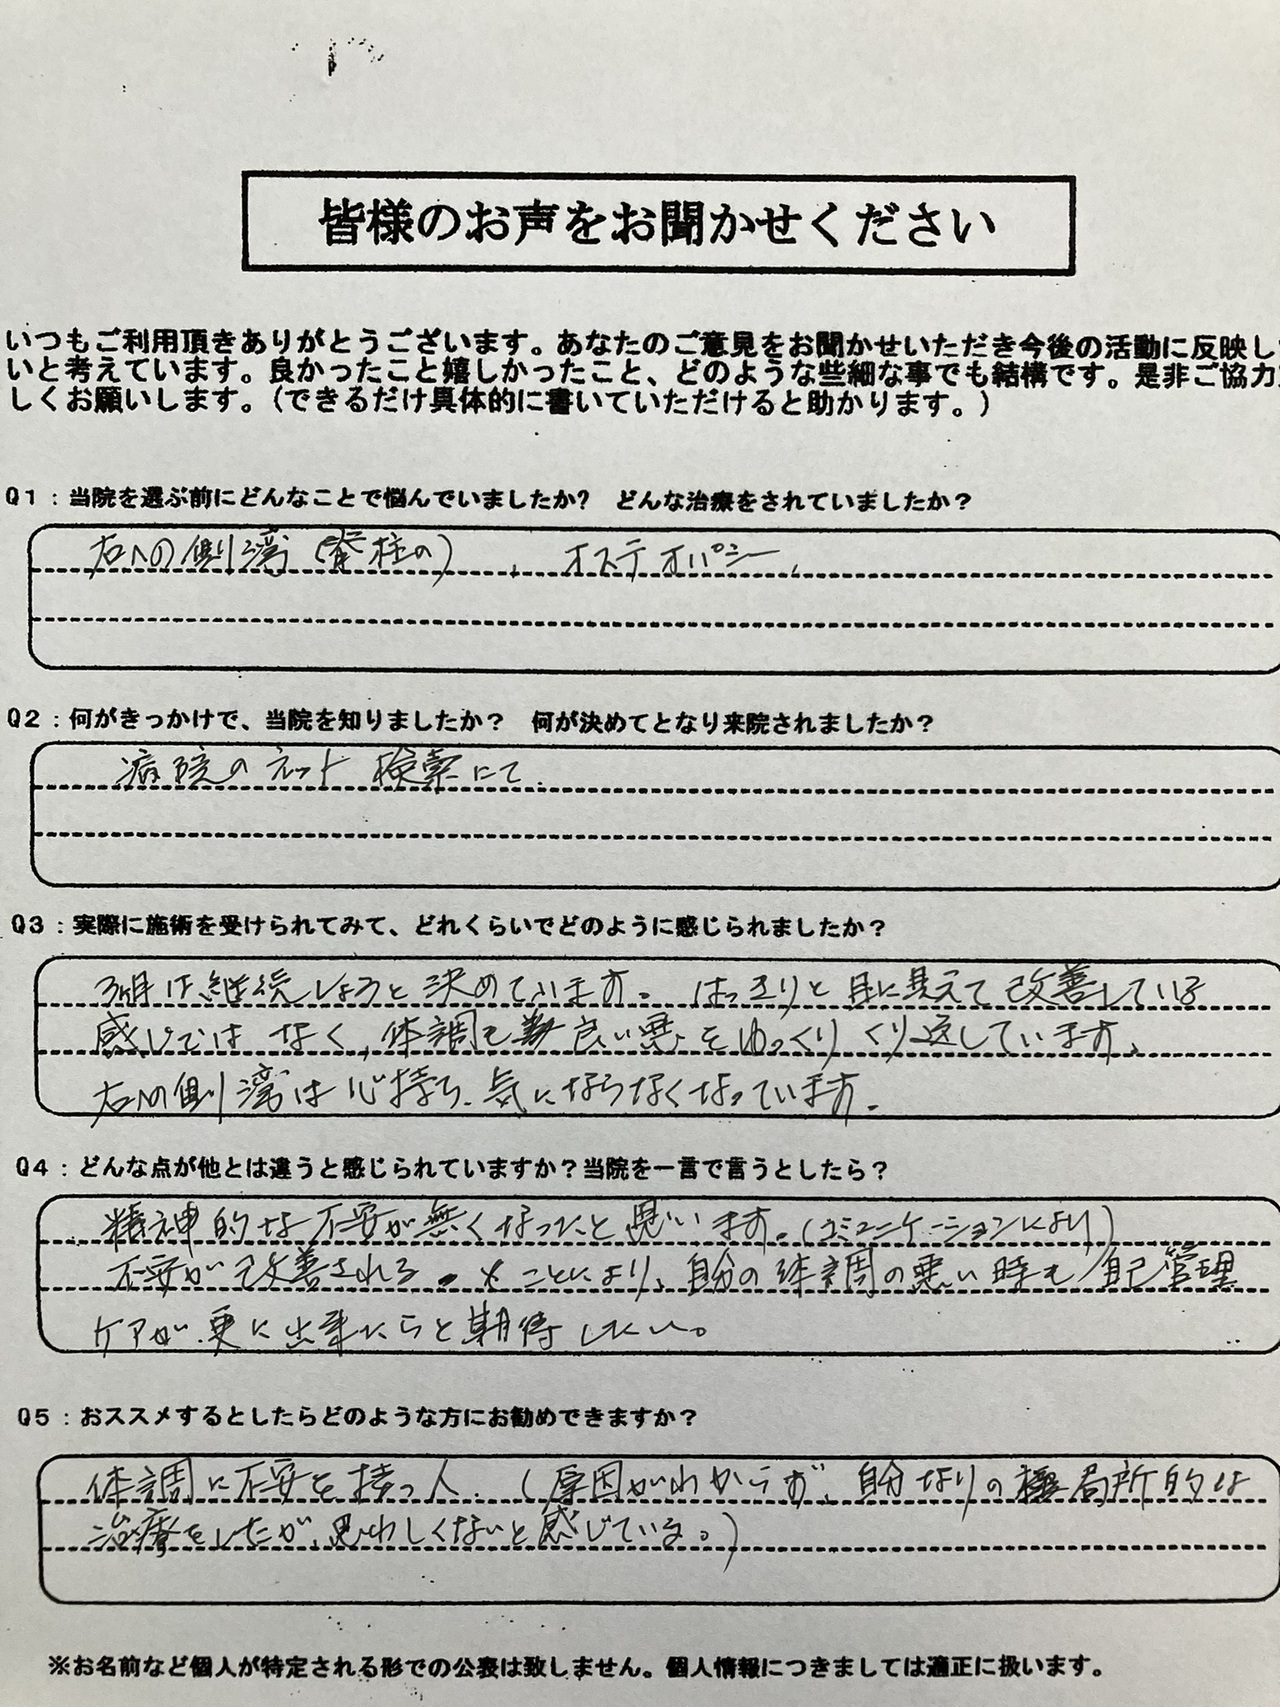 皆様のお声をお聞かせください
いつもご利用頂きありがとうございます。あなたのご意見をお聞かせいただき今後の活動に反映し
いと考えています。良かったこと嬉しかったこと、どのような些細な事でも結構です。是非ご協力
しくお願いします。（できるだけ具体的に書いていただけると助かります。）
Q1：当院を選ぶ前にどんなことで悩んでいましたか?　どんな治療をされていましたか？
右への側湾（脊柱の）、オステオパシー、
Q2：何がきっかけで、当院を知りましたか？　何が決めてとなり来院されましたか？
病院のネット検索にて
Q3：実際に施術を受けられてみて、どれくらいでどのように感じられましたか？
3ヶ月は継続しようと決めています。はっきりと目に見えて改善している
感じではなく、体調も良い悪いをゆっくりくり返しています、
右への側湾は心持ち、気にならなくなっています。
Q4：どんな点が他とは違うと感じられていますか？当院を一言で言うとしたら？
精神的な不安が無くなったと思います。（コミュニケーションにより）
不安が改善されることにより、自分の体調の悪い時も自己管理
ケアが、更に出来たらと期待したい。
Q5：おススメするとしたらどのような方にお勧めできますか？
体調に不安を持つ人．（原因がわからず、自分なりの局所的な
治療をしたが、思わしくないと感じている。）
※お名前など個人が特定される形での公表は致しません。個人情報につきましては適正に扱います。